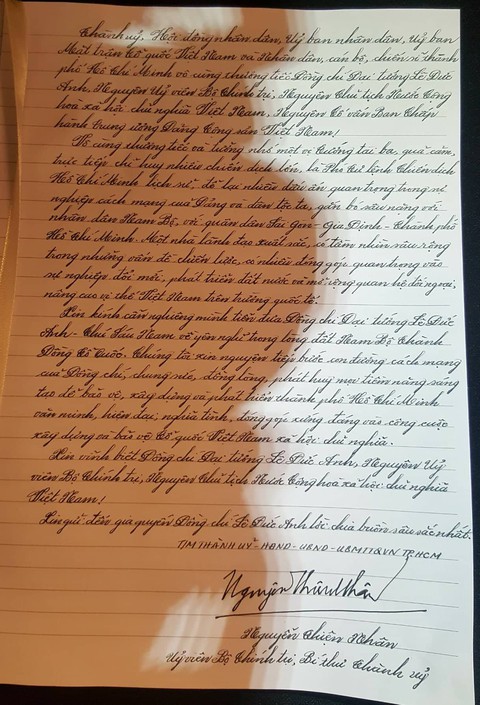 Thành uỷ, Hội đồng nhân dân, Uỷ ban nhân dân, Uỷ ban
Mặt trận Tổ quốc Việt Nam và Nhân dân, cán bộ, chiến sĩ thành
phố Hồ Chí Minh vô cùng thương tiếc Đồng chí Đại tướng Lê Đức
Anh, Nguyên Uỷ viên Bộ Chính trị, Nguyên Chủ tịch Nước Cộng
hoà xã hội chủ nghĩa Việt Nam, Nguyên Cố vấn Ban Chấp
hành Trung ương Đảng Cộng sản Việt Nam!
Vô cùng thương tiếc và tưởng nhớ một vị tướng tài ba, quả cảm,
trực tiếp chỉ huy nhiều chiến dịch lớn, là Phó Tư lệnh Chiến dịch
Hồ Chí Minh lịch sử, để lại nhiều dấu ấn quan trọng trong sự
nghiệp cách mạng của Đảng và dân tộc ta, gắn bó sâu nặng với
nhân dân Nam Bộ, với quân dân Sài Gòn - Gia Định - Thành phố
Hồ Chí Minh. Một nhà lãnh đạo xuất sắc, có tầm nhìn sâu rộng
trong những vấn đề chiến lược, có nhiều đóng góp quan trọng vào
sự nghiệp đổi mới, phát triển đất nước và mở rộng quan hệ đối ngoại,
nâng cao vị thế Việt Nam trên trường quốc tế.
Xin kính cẩn nghiêng mình tiễn đưa Đồng chí Đại tướng Lê Đức
Anh - Chú Sáu Nam về yên nghỉ trong lòng đất Nam Bộ Thành
Đồng Tổ Quốc. Chúng tôi xin nguyện tiếp bước con đường cách mạng
của Đồng chí, chung sức, đồng lòng, phát huy mọi tiềm năng sáng
tạo để bảo vệ, xây dựng và phát triển thành phố Hồ Chí Minh
văn minh, hiện đại, nghĩa tình, đóng góp xứng đáng vào công cuộc
xây dựng và bảo vệ Tổ quốc Việt Nam xã hội chủ nghĩa.
Xin vĩnh biệt Đồng chí Đại tướng Lê Đức Anh, Nguyên Uỷ
viên Bộ Chính trị, Nguyên Chủ tịch Nước Cộng hoà xã hội chủ nghĩa
Việt Nam!
Xin gửi đến gia quyến Đồng chí Lê Đức Anh lời chia buồn sâu sắc nhất.
TM THÀNH UỶ - HĐND - UBND - UBMTTQVN TP.HCM
Nguyễn Thiện Nhân
Nguyễn Thiện Nhân
Uỷ viên Bộ Chính trị, Bí thư Thành uỷ